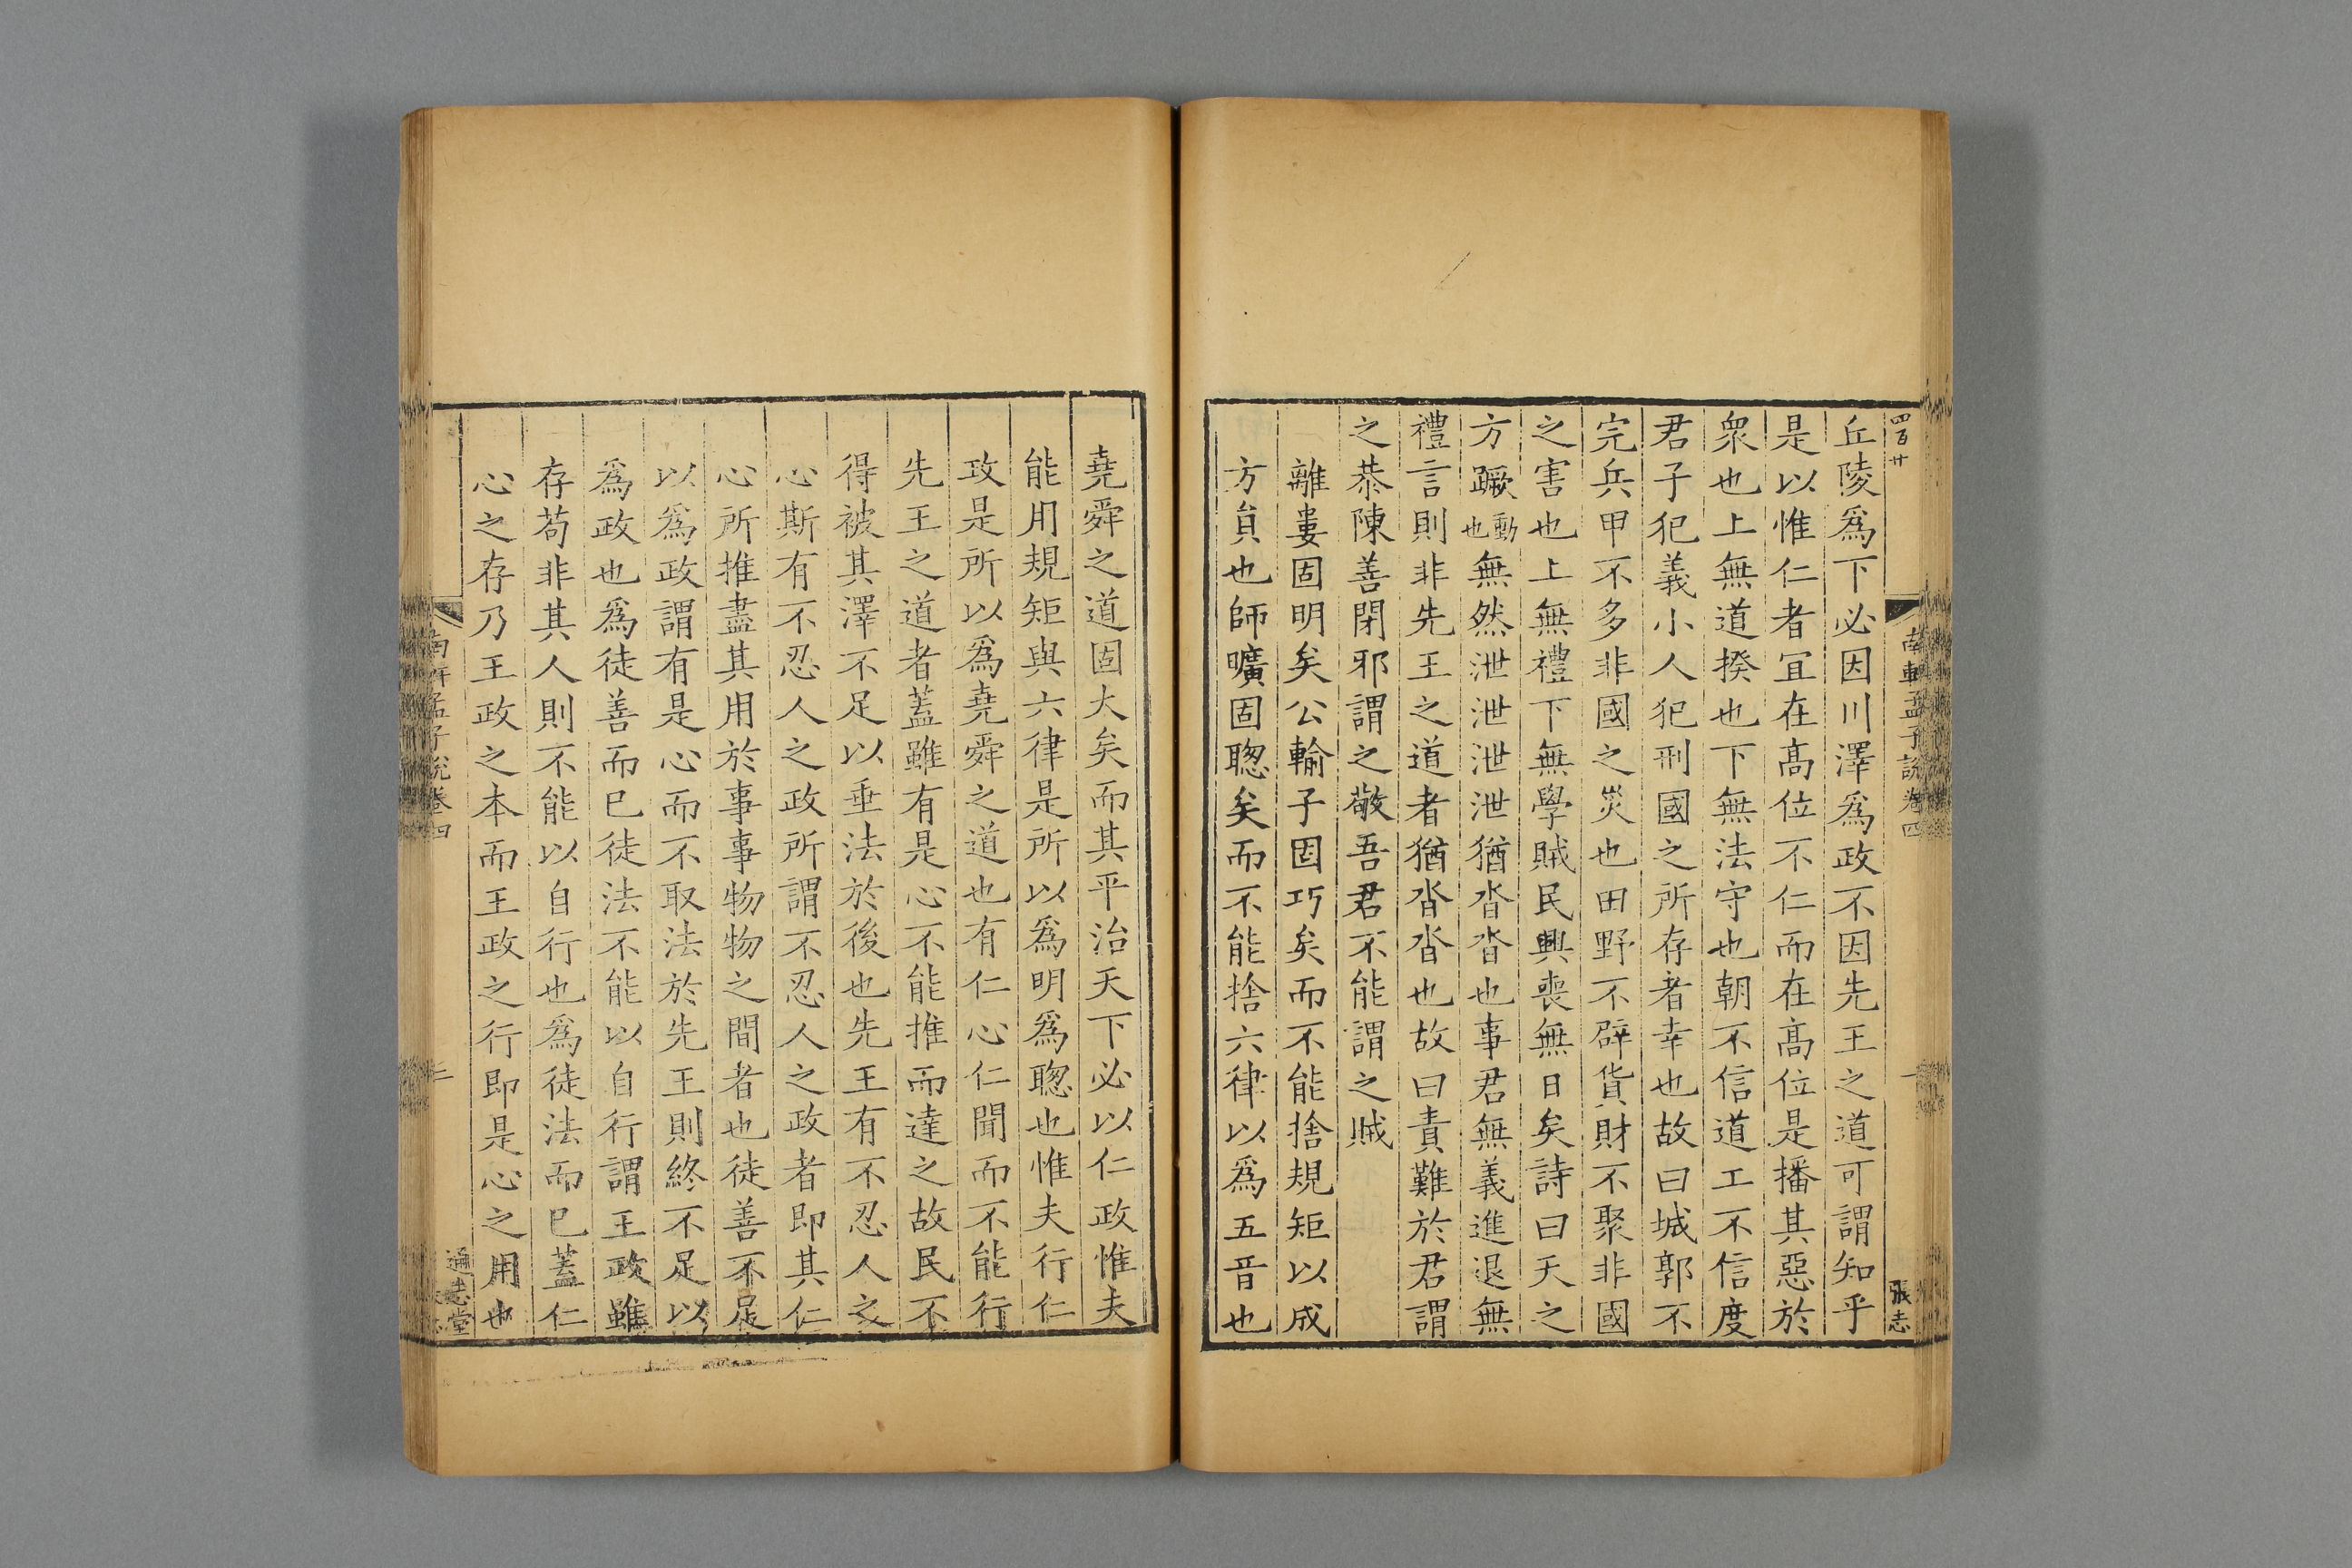 四百廿
南軒孟子說卷四
一
張志
丘陵爲下必因川澤爲政不因先王之道可謂知乎
是以惟仁者宜在高位不仁而在高位是播其惡於
衆也上無道揆也下無法守也朝不信道工不信度
君子犯義小人犯刑國之所存者幸也故曰城郭不
完兵甲不多非國之災也田野不辟貨財不聚非國
之害也上無禮下無學賊民興喪無日矣詩曰天之
方蹶動也無然泄泄泄泄猶沓沓也事君無義進退無
禮言則非先王之道者猶沓沓也故曰責難於君謂
之恭陳善閉邪謂之敬吾君不能謂之賊
離婁固明矣公輸子固巧矣而不能捨規矩以成
方貟也師曠固聦矣而不能捨六律以爲五音也
堯舜之道固大矣而其平治天下必以仁政惟夫
能用規矩與六律是所以爲明爲聦也惟夫行仁
政是所以爲堯舜之道也有仁心仁聞而不能行
先王之道者蓋雖有是心不能推而達之故民不
得被其澤不足以垂法於後也先王有不忍人之
心斯有不忍人之政所謂不忍人之政者即其仁
心所推盡其用於事事物物之間者也徒善不足
以爲政謂有是心而不取法於先王則終不足以
爲政也爲徒善而已徒法不能以自行謂王政雖
存苟非其人則不能以自行也爲徒法而已蓋仁
心之存乃王政之本而王政之行即是心之用也
南軒孟子說卷四
二
通志堂